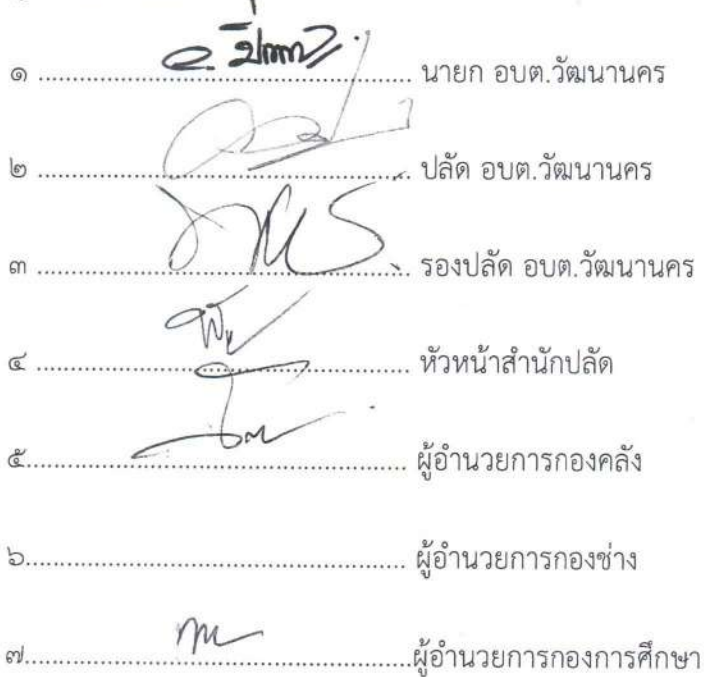 ๑ ................................................ นายก อบต.วัฒนานคร
๒ ................................................ ปลัด อบต.วัฒนานคร
๓ ................................................ รองปลัด อบต.วัฒนานคร
๔ ................................................ หัวหน้าสำนักปลัด
๕................................................ ผู้อำนวยการกองคลัง
๖................................................ ผู้อำนวยการกองช่าง
๗................................................ผู้อำนวยการกองการศึกษา